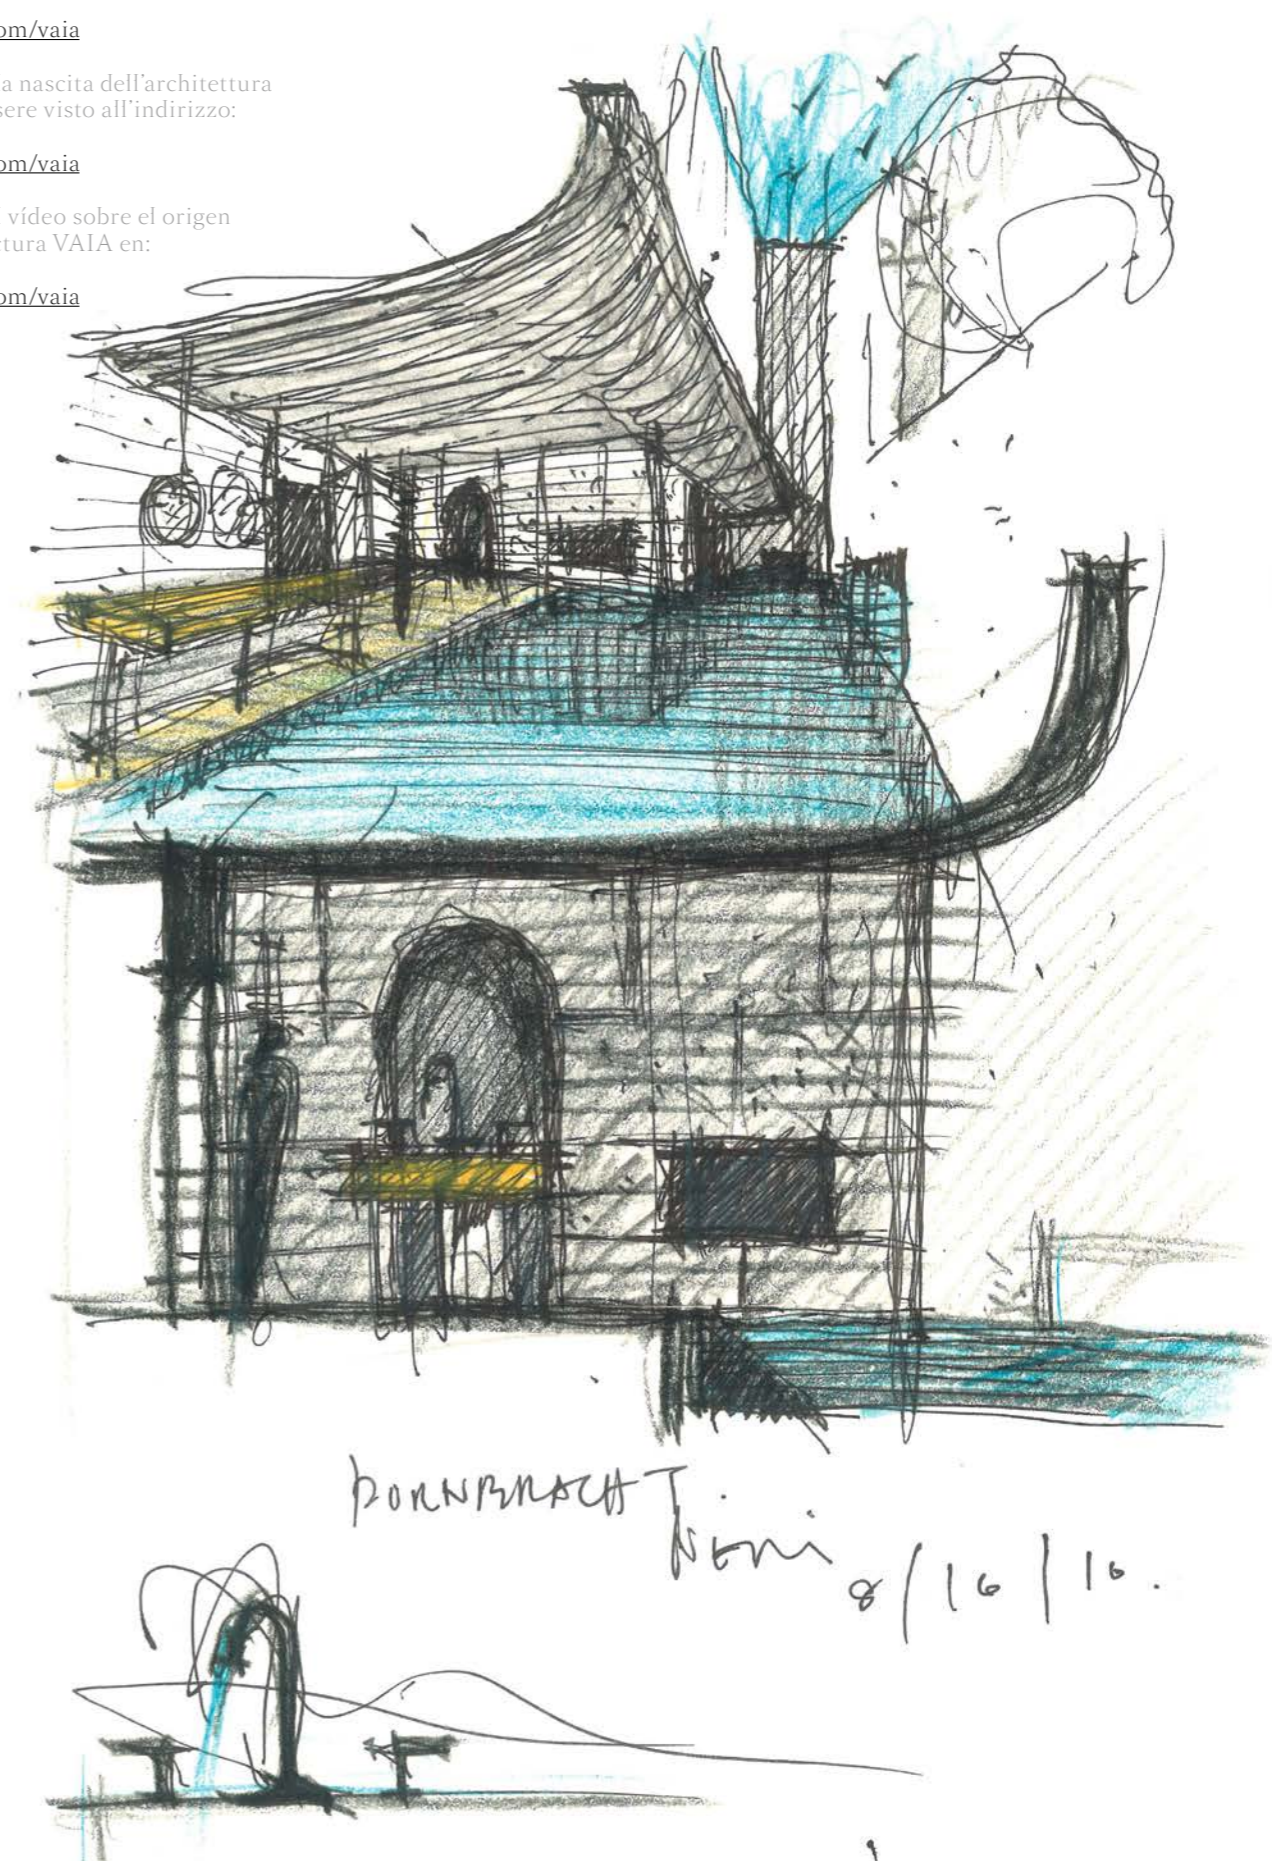 om/vaia
a nascita dell'architettura
sere visto all'indirizzo:
om/vaia
vídeo sobre el origen
ctura VAIA en:
om/vaia
DORNBRACHT
8/16/16.